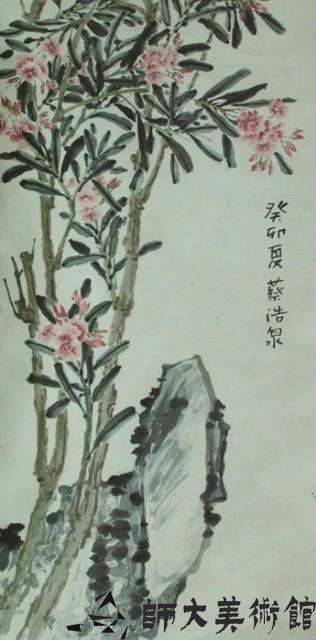 癸卯夏蔡浩泉
師大美術館